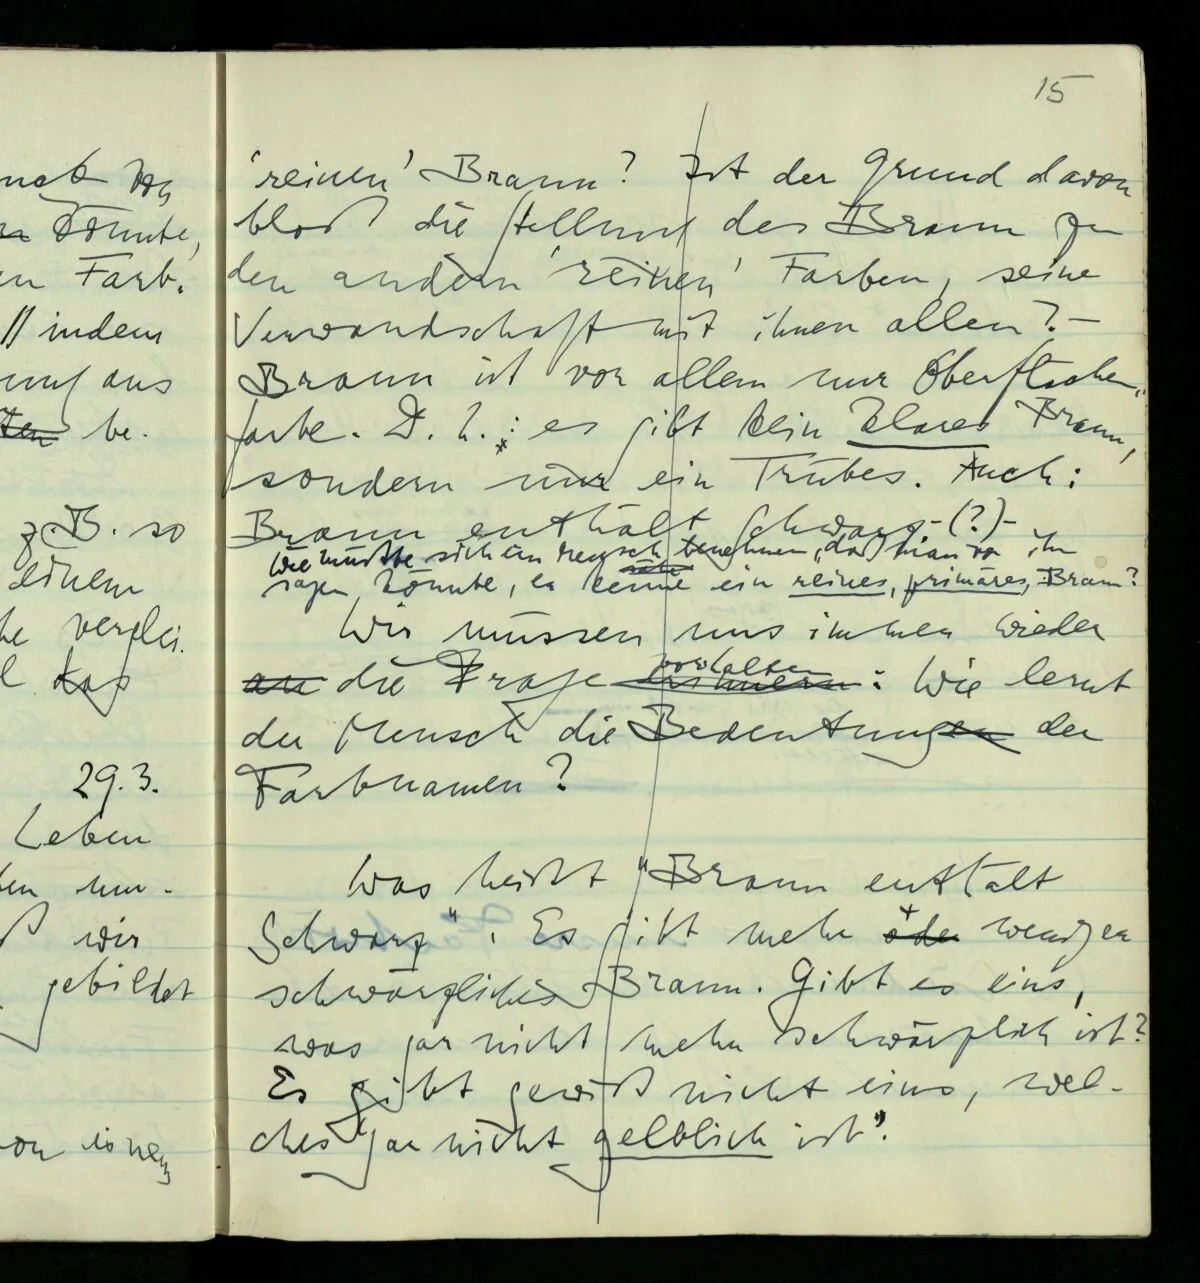 15
'reinen' Braun? Ist der Grund davon
bloß die Stellung des Braun zu
den andern 'reinen' Farben, seine
Verwandschaft mit ihnen allen? –
Braun ist vor allem nur Oberflächen-
farbe. D. h.: es gibt kein klares Braun,
sondern nur ein Trübes. Auch:
Braun enthält Schwarz – (?) –
Wie müßte sich ein Mensch benehmen, daß man von ihm
sagen könnte, er kenne ein reines, primäres, Braun?
Wir müssen uns immer wieder
an die Frage vorhalten: Wie lernt
der Mensch die Bedeutungen der
Farbnamen?
Was heißt "Braun enthält
Schwarz". Es gibt mehr oder weniger
schwärzliches Braun. Gibt es eins,
was gar nicht mehr schwärzlich ist?
Es gibt gewiß nicht eins, wel-
ches gar nicht gelblich ist".
könnte,
en Farb.
indem
aus
be-
z.B. so
einem
verglei-
das
29.3.
Leben
nun-
wir
gebildet